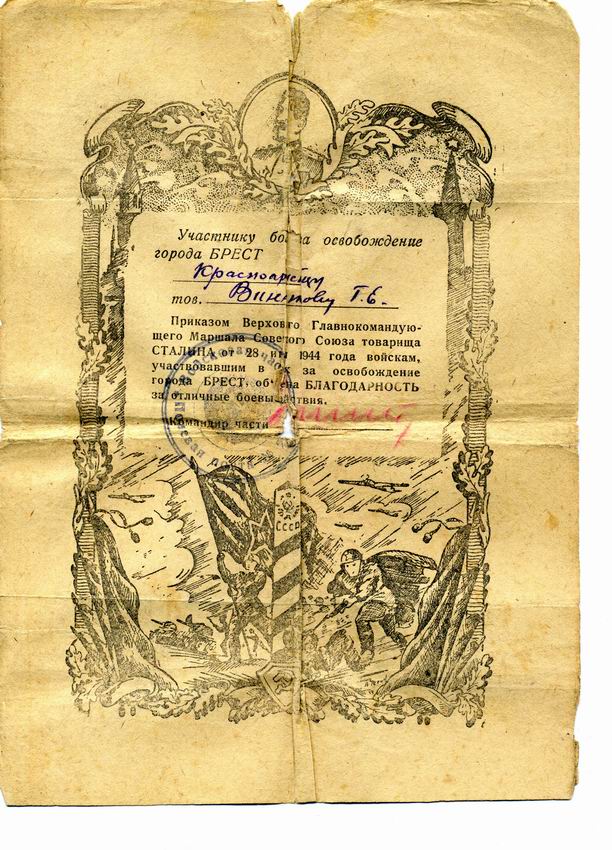 Участнику боев за освобождение
города БРЕСТ
Красноармейцу
тов. Г. Е.
Приказом Верховного Главнокомандую-
щего Маршала Советского Союза товарища
СТАЛИНА от 28 июля 1944 года войскам,
участвовавшим в боях за освобождение
города БРЕСТ, объявлена БЛАГОДАРНОСТЬ
за отличные боевые действия.
Командир части
СССР